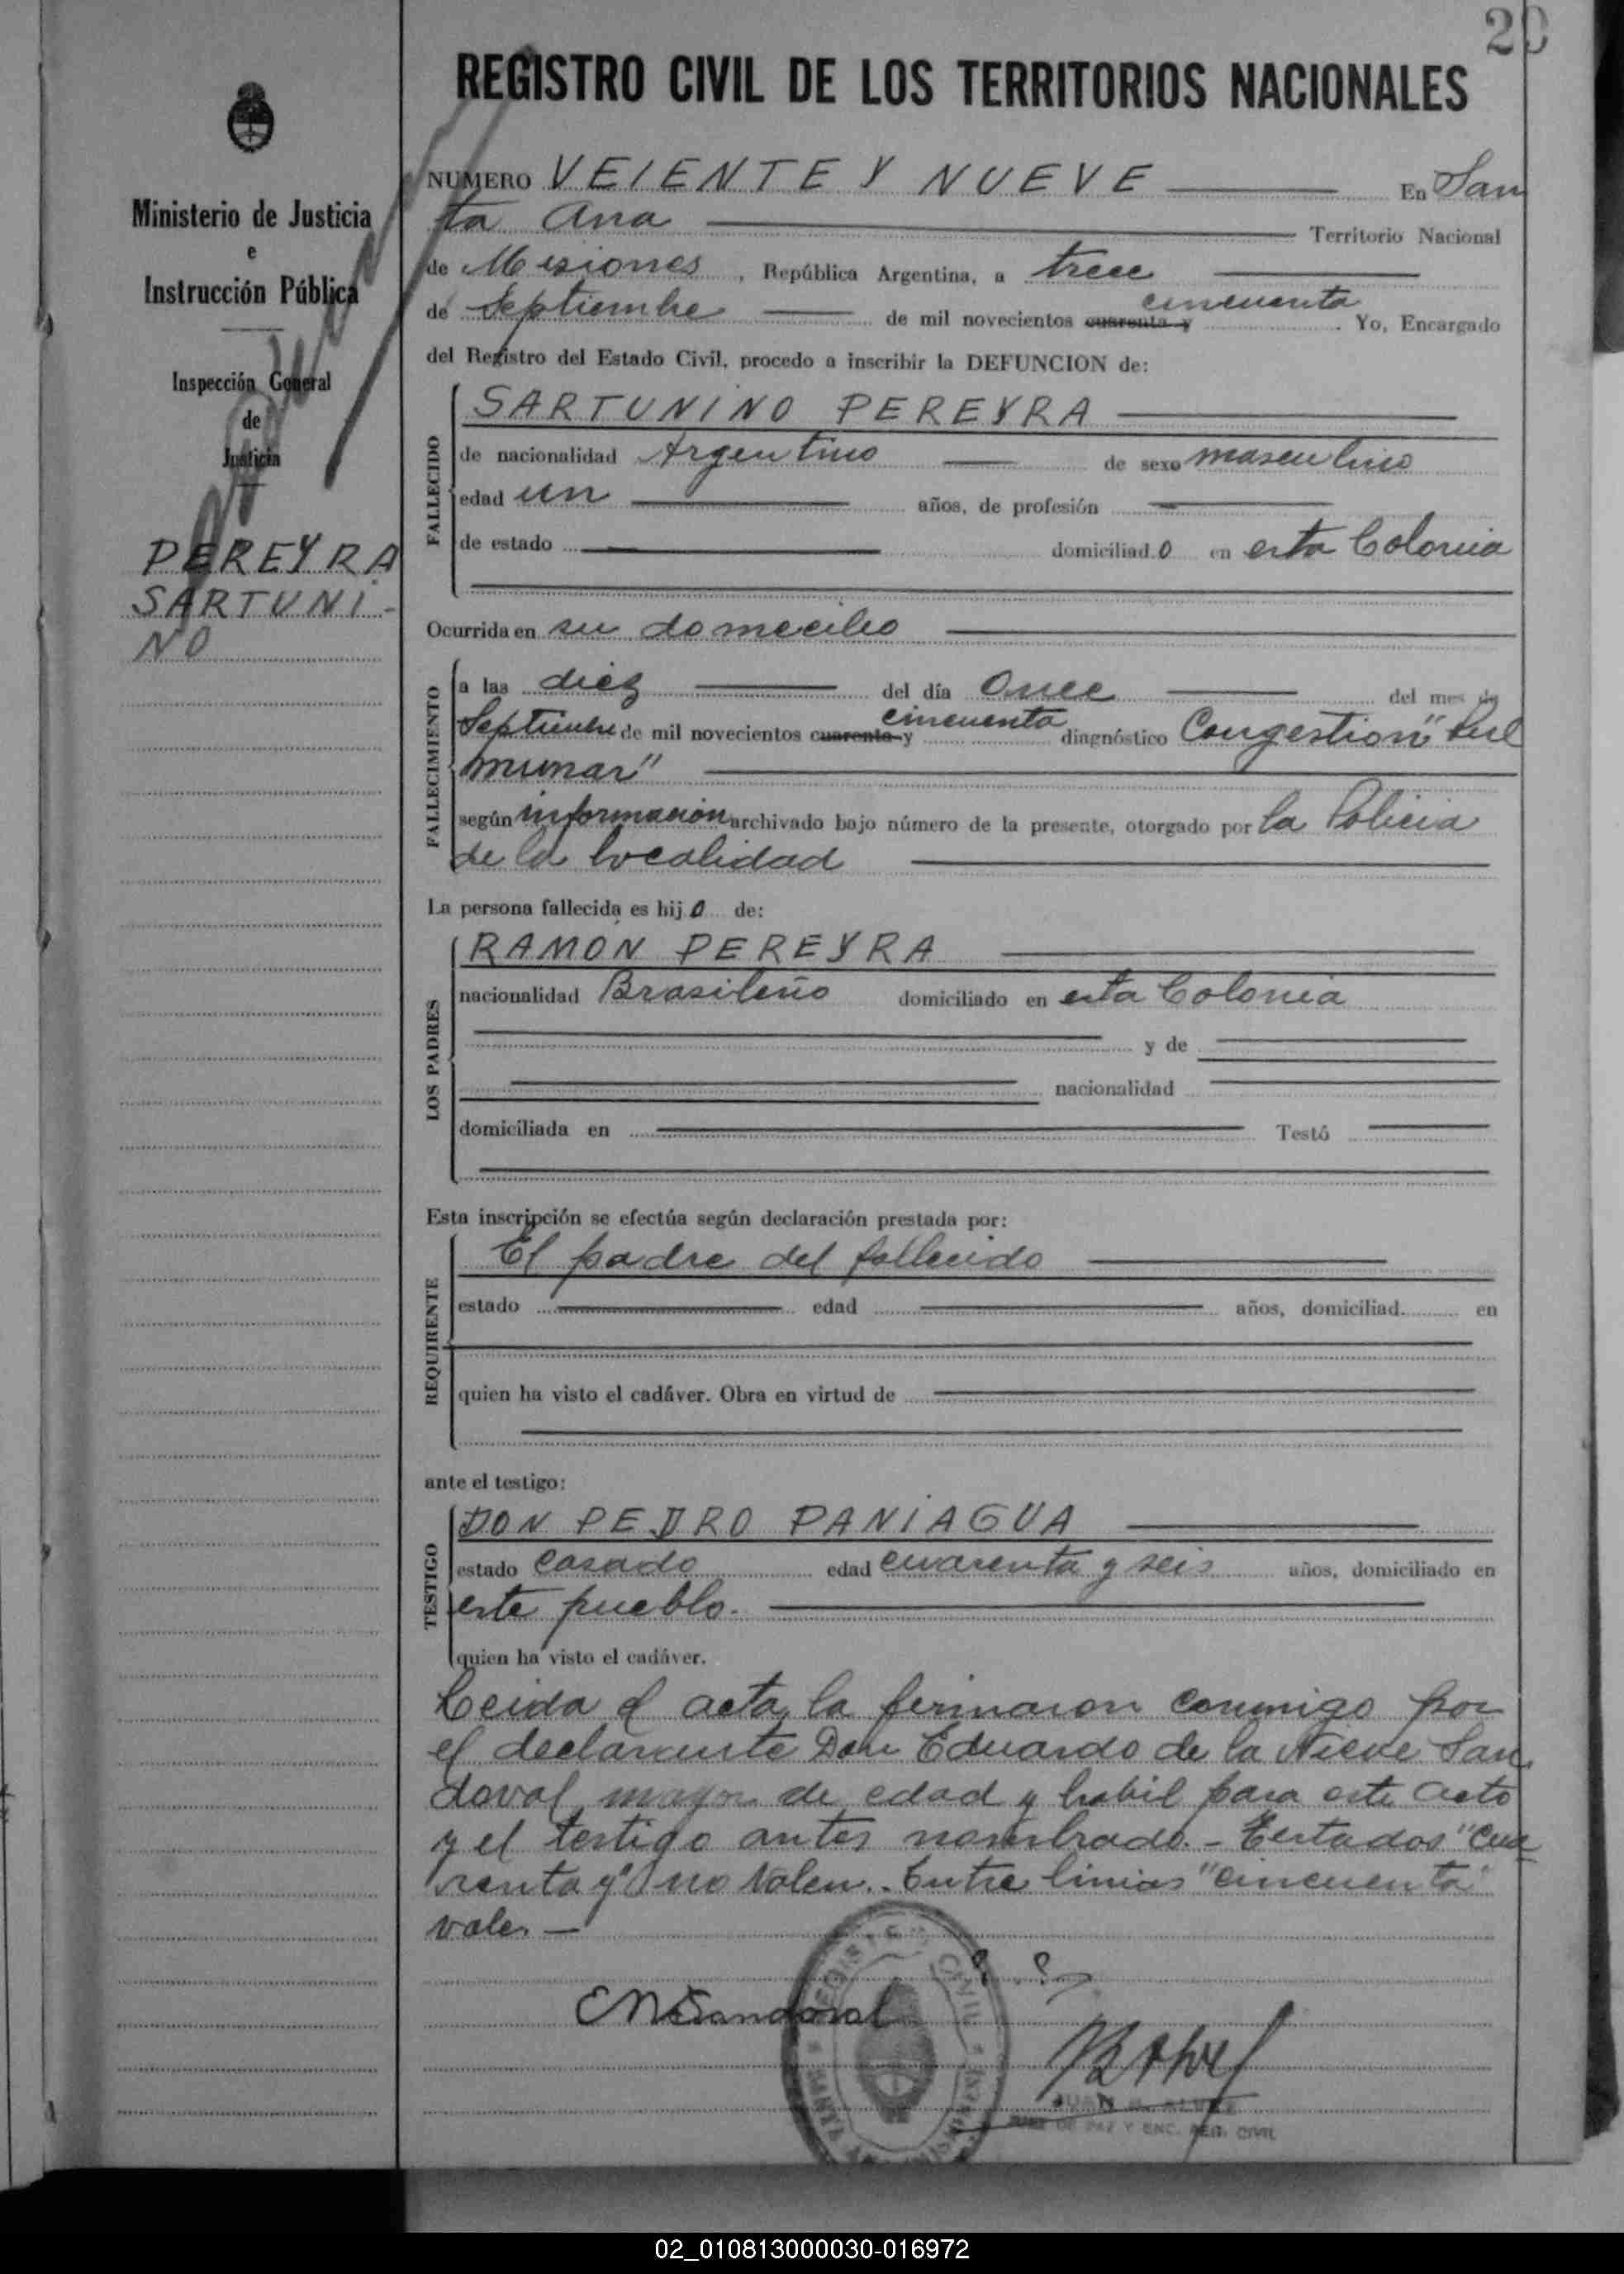 20
REGISTRO CIVIL DE LOS TERRITORIOS NACIONALES
Ministerio de Justicia
e
Instrucción Pública
Inspección General
de
Justicia
PEREYRA
SARTUNI-
NO
NUMERO VEIENTE Y NUEVE En San
ta Ana Territorio Nacional
de Misiones, República Argentina, a trece
de Septiembre de mil novecientos cuarenta y cincuenta. Yo, Encargado
del Registro del Estado Civil, procedo a inscribir la DEFUNCION de:
FALLECIDO
SARTUNINO PEREYRA
de nacionalidad Argentino de sexo masculino
edad un años, de profesión
de estado domiciliad o en esta Colonia
Ocurrida en su domecilio
FALLECIMIENTO
a las diez del día Once del mes de
Septiembre de mil novecientos cuarenta y cincuenta diagnóstico Congestion "Pul
munar"
según información archivado bajo número de la presente, otorgado por la Policia
de la localidad
La persona fallecida es hij o de:
LOS PADRES
RAMON PEREYRA
nacionalidad Brasileño domiciliado en esta Colonia
y de
nacionalidad
domiciliada en Testó
Esta inscripción se efectúa según declaración prestada por:
REQUIRENTE
El padre del fallecido
estado edad años, domiciliad en
quien ha visto el cadáver. Obra en virtud de
ante el testigo:
TESTIGO
DON PEDRO PANIAGUA
estado Casado edad cuarenta y seis años, domiciliado en
este pueblo.
quien ha visto el cadáver.
Leida el acta, la firmaron conmigo por
el declarante Don Eduardo de la Nieve San
doval, mayor de edad y habil para este acto
y el testigo antes nombrado.- Testados "cua
renta y" no valen.- Entre linias "cincuenta"
vale. -
ENSandoval
REGISTRO CIVIL
SANTA ANA
JUEZ DE PAZ Y ENC. REG. CIVIL
02_010813000030-016972